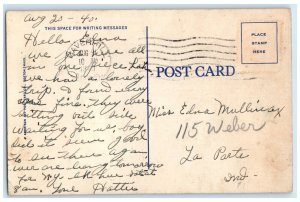 Aug 20 - 40.
THIS SPACE FOR WRITING MESSAGES
Hello Edna
we are all
in one piece
we had a lovely
trip. & found every
one fine. they were
sitting out side
waiting for us boy
did it seem good
to see them again
we are going tomorrow
for my
8 am. Love Hattie
PLACE
STAMP
HERE
POST CARD
Miss Edna
115 Weber
La Porte
Ind